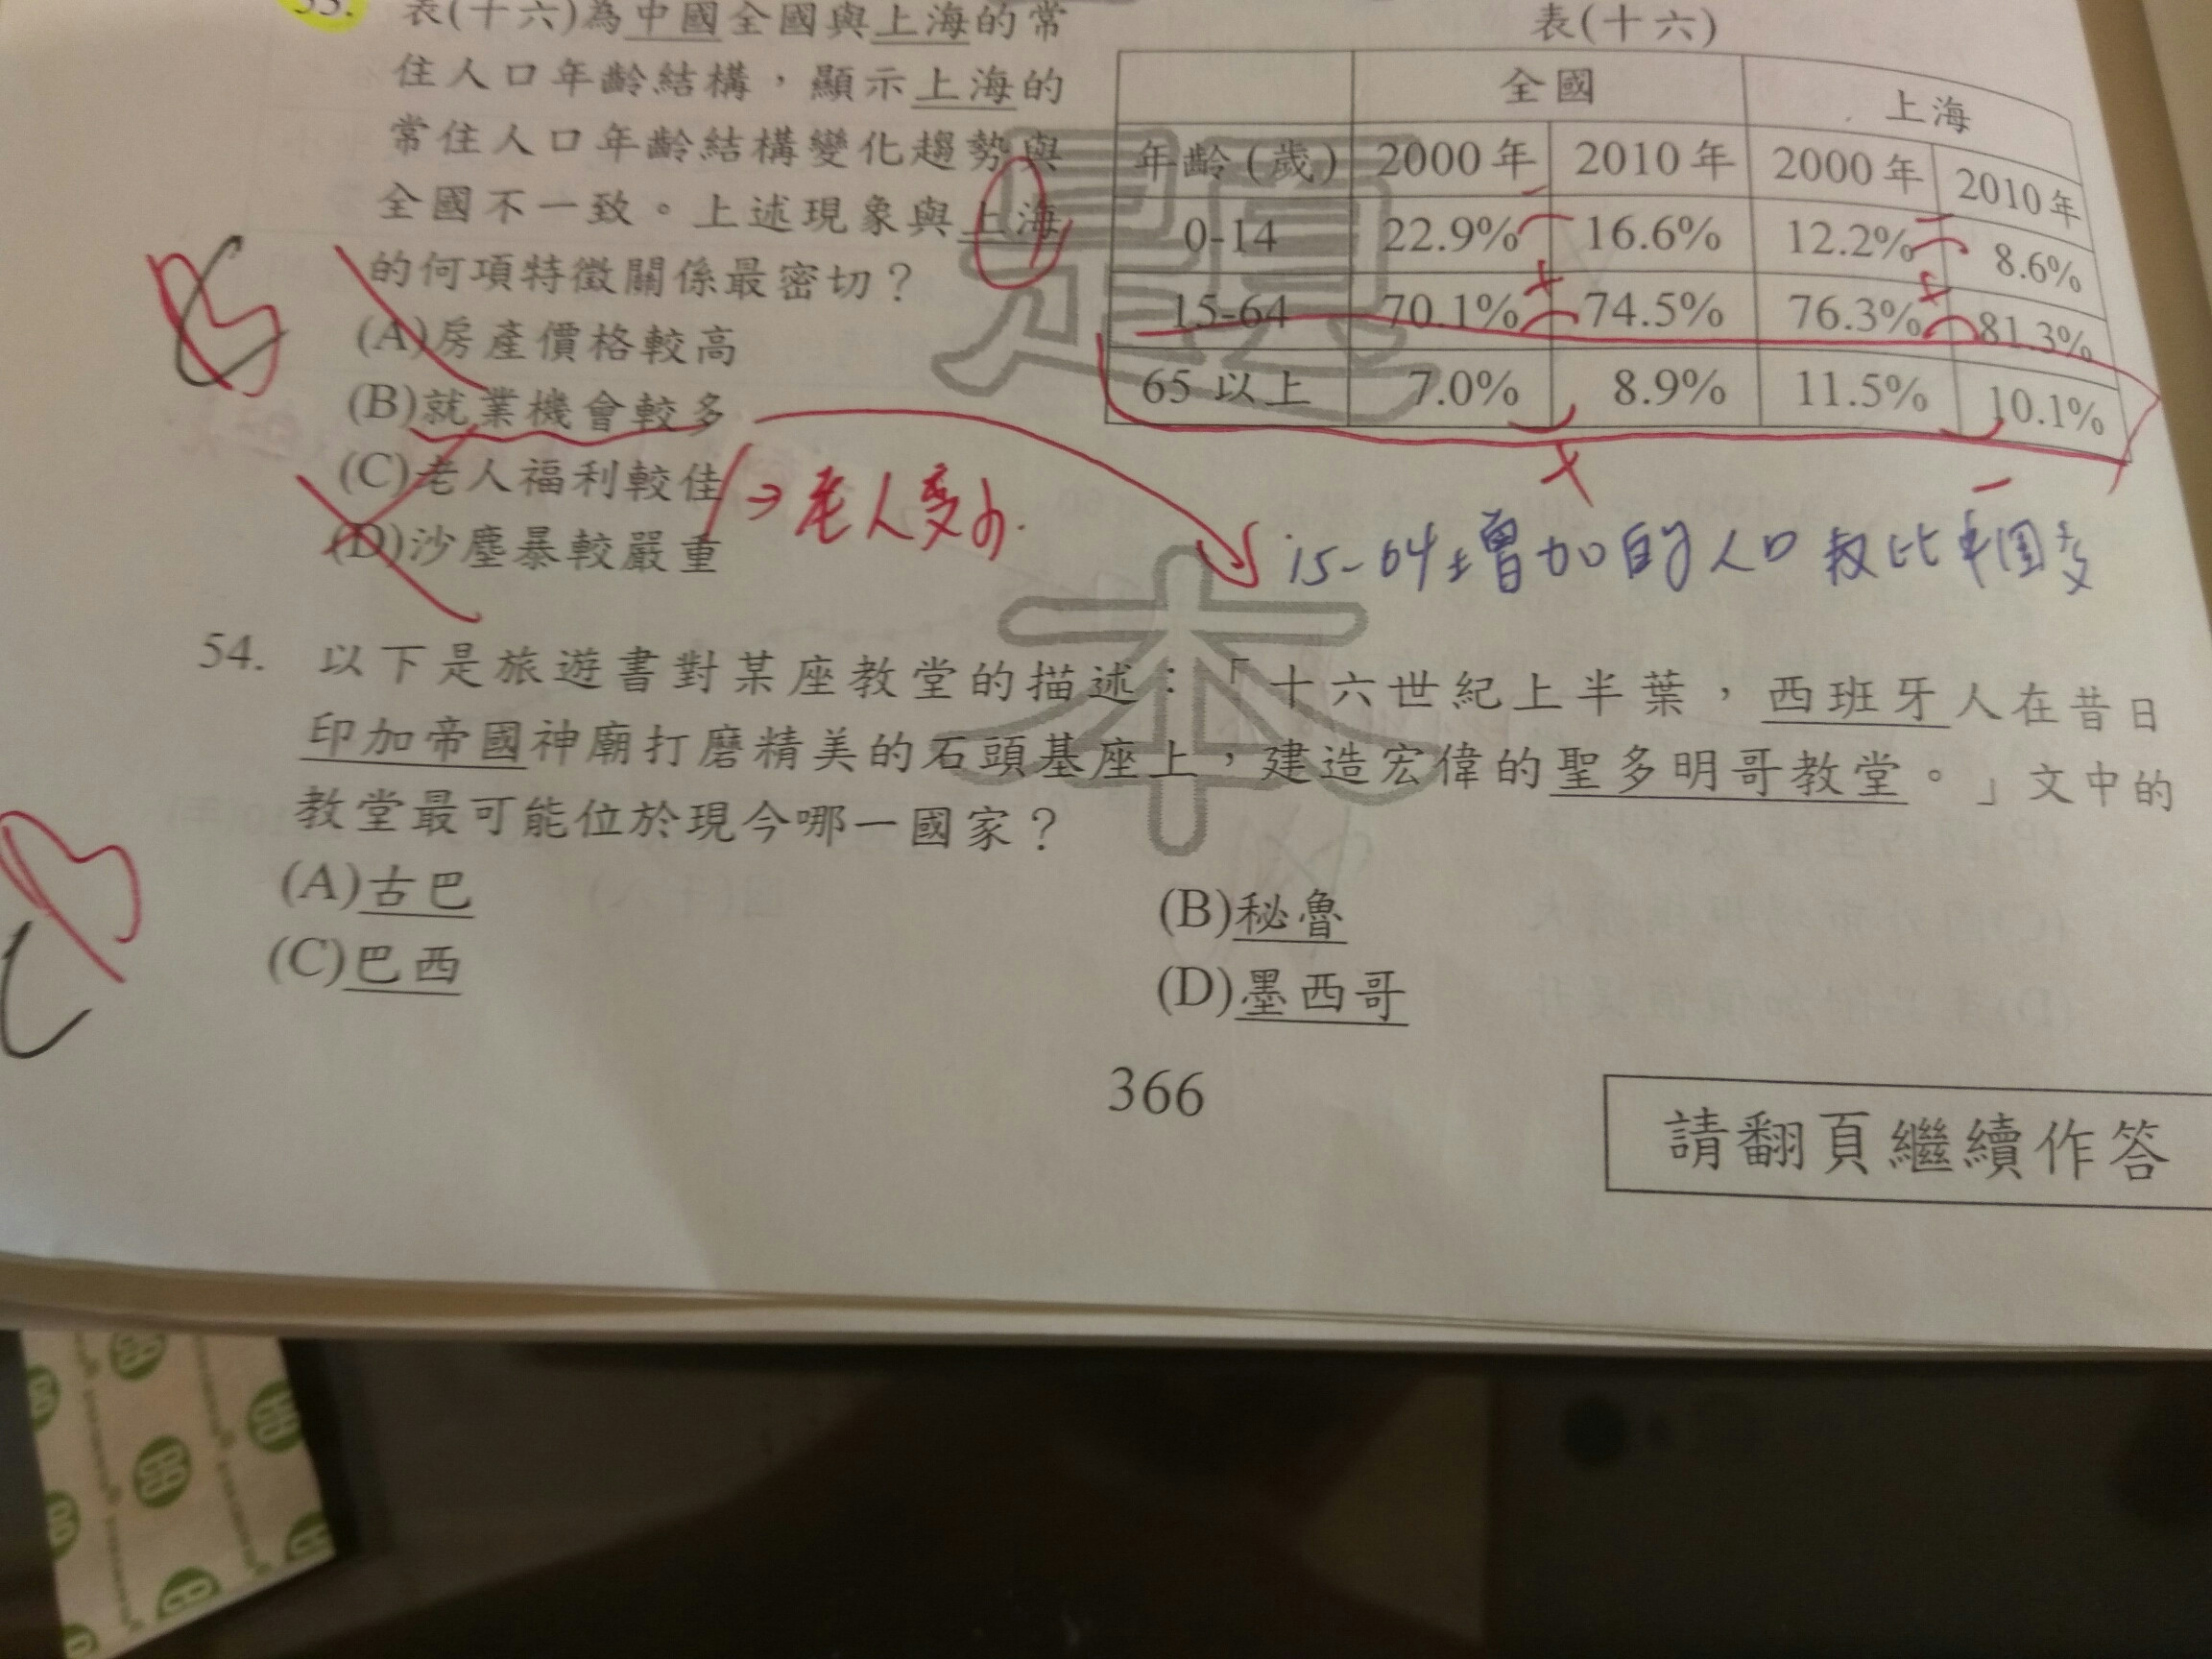 53. 表(十六)為中國全國與上海的常
住人口年齡結構，顯示上海的
常住人口年齡結構變化趨勢與
全國不一致。上述現象與上海
的何項特徵關係最密切？
(A)房產價格較高
(B)就業機會較多
(C)老人福利較佳
(D)沙塵暴較嚴重
→老人變少.
表(十六)
全國 上海
年齡(歲) 2000年 2010年 2000年 2010年
0-14 22.9% 16.6% 12.2% 8.6%
15-64 70.1% 74.5% 76.3% 81.3%
65以上 7.0% 8.9% 11.5% 10.1%
15-64 增加的人口 比 國
樣本
54. 以下是旅遊書對某座教堂的描述：「十六世紀上半葉，西班牙人在昔日
印加帝國神廟打磨精美的石頭基座上，建造宏偉的聖多明哥教堂。」文中的
教堂最可能位於現今哪一國家？
(A)古巴
(B)秘魯
(C)巴西
(D)墨西哥
366
請翻頁繼續作答